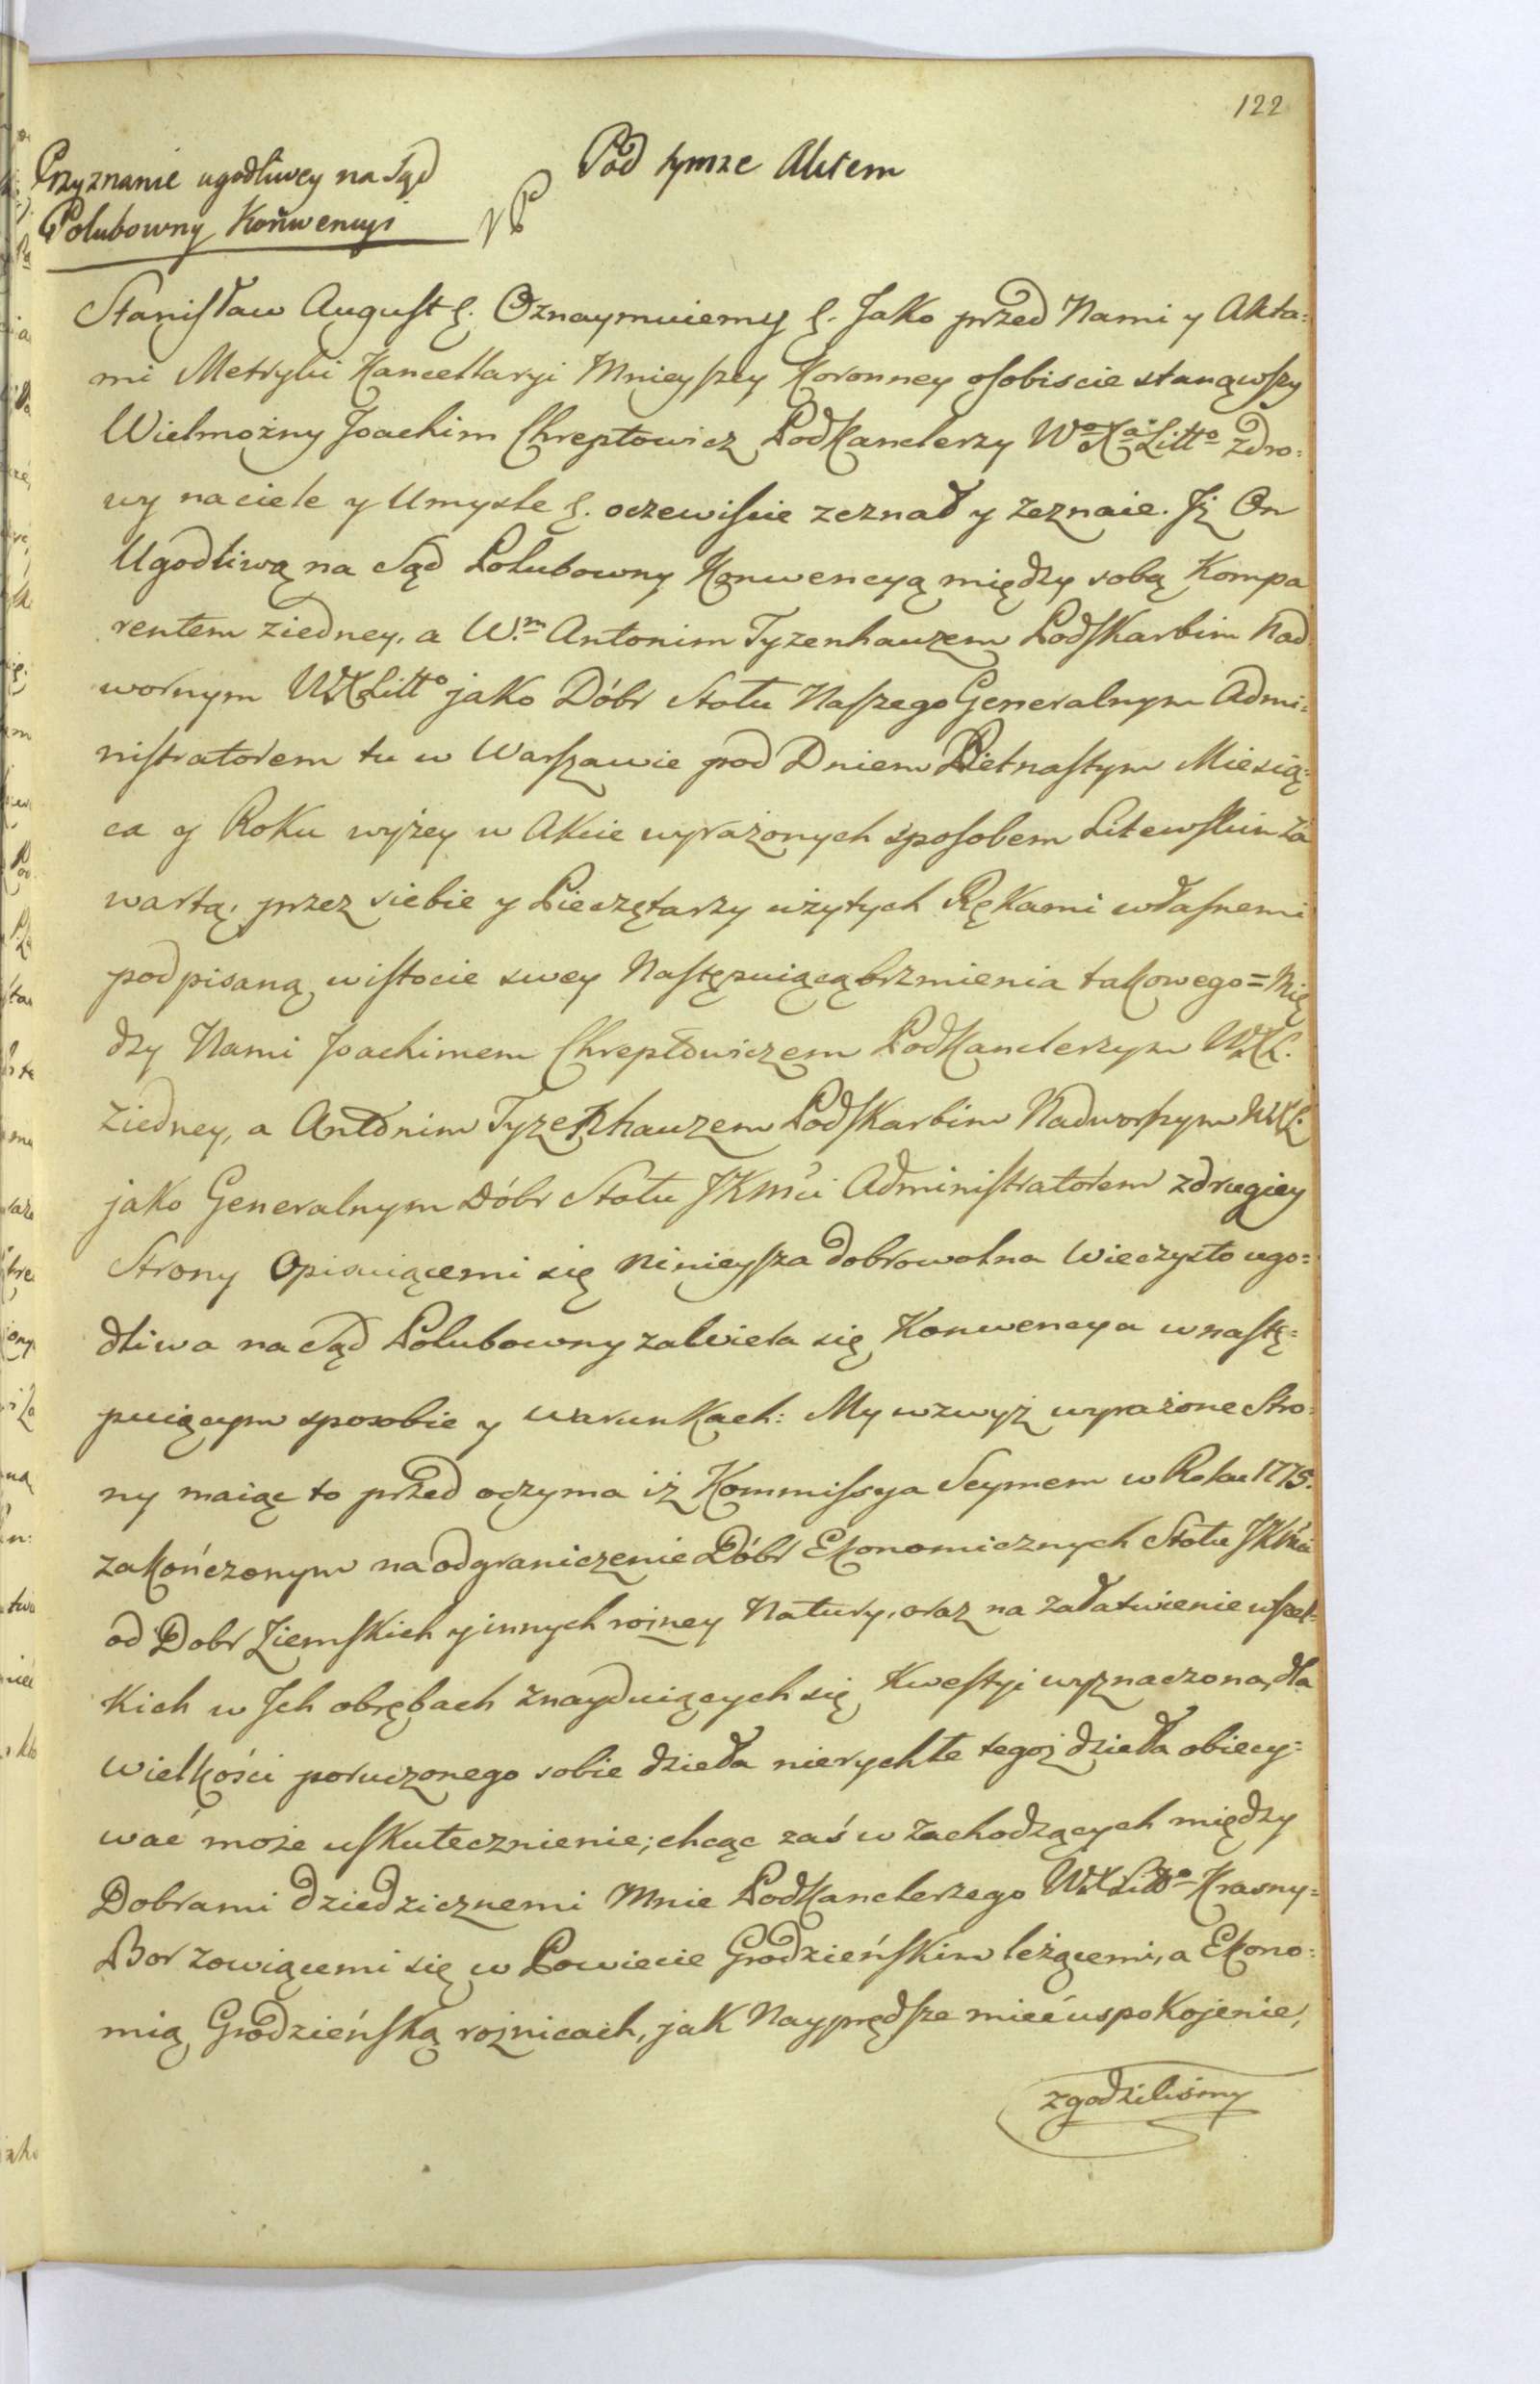 122
Pod tymze Aktem
Przyznanie ugodliwey na Sąd
Polubowny Konwencyi
Stanisław August &. Oznaymuiemy &. Jako przed Nami y Akta=
mi Metryki Kancellaryi Mnieyszey Koronney osobiscie stanąwszy
Wielmożny Joachim Chreptowicz Podkanclerzy Wo Xa Litto zdro=
wy na ciele y Umysle &. oczewiscie zeznał y zeznaie. Jż On
Ugodliwą na Sąd Polubowny Konwencyą między sobą Kompa
rentem ziedney, a W.m Antonim Tyzenhauzem Podskarbim Nad
wornym WX Litto jako Dóbr Stołu Naszego Generalnym Admi=
nistratorem tu w Warszawie pod Dniem Pietnastym Miesią=
ca y Roku wyżey w Akcie wyrażonych sposobem Litewskim Za
wartą, przez siebie y Pieczętarzy użytych Rękami własnemi
podpisaną wistocie swey Następuiącą brzmienia takowego = Mię
dzy Nami Joachimem Chreptowiczem Podkanclerzym WXL.
ziedney, a Antonim Tyzenhauzem Podskarbim Nadwornym WXL.
jako Generalnym Dóbr Stołu JKMci Administratorem zdrugiey
Strony Opisuiącemi się ninieysza dobrowolna Wieczysto ugo=
dliwa na Sąd Polubowny zawiera się Konwencya wnastę=
puiącym sposobie y warunkach: My wzwyż wyrażone Stro=
ny maiąc to przed oczyma iż Kommissya Seymem w Roku 1775.
zakończonym na odgraniczenie Dóbr Ekonomicznych Stołu JKMci
od Dobr Ziemskich y innych rożney Natury, oraz na załatwienie wszel=
Kich w Jch obrębach znayduiących się Kwestyi wyznaczona, dla
wielkości poruczonego sobie dzieła nierychłe tegoż dzieła obiecy=
wać może uskutecznienie; chcąc zaś w zachodzących między
Dobrami dziedzicznemi Mnie Podkanclerzego WX Litto Krasny=
Bor zowiącemi się w Powiecie Grodzieńskim leżącemi, a Ekono=
mią Grodzieńską rożnicach, jak Nayprędsze mieć uspokojenie,
zgodzilismy